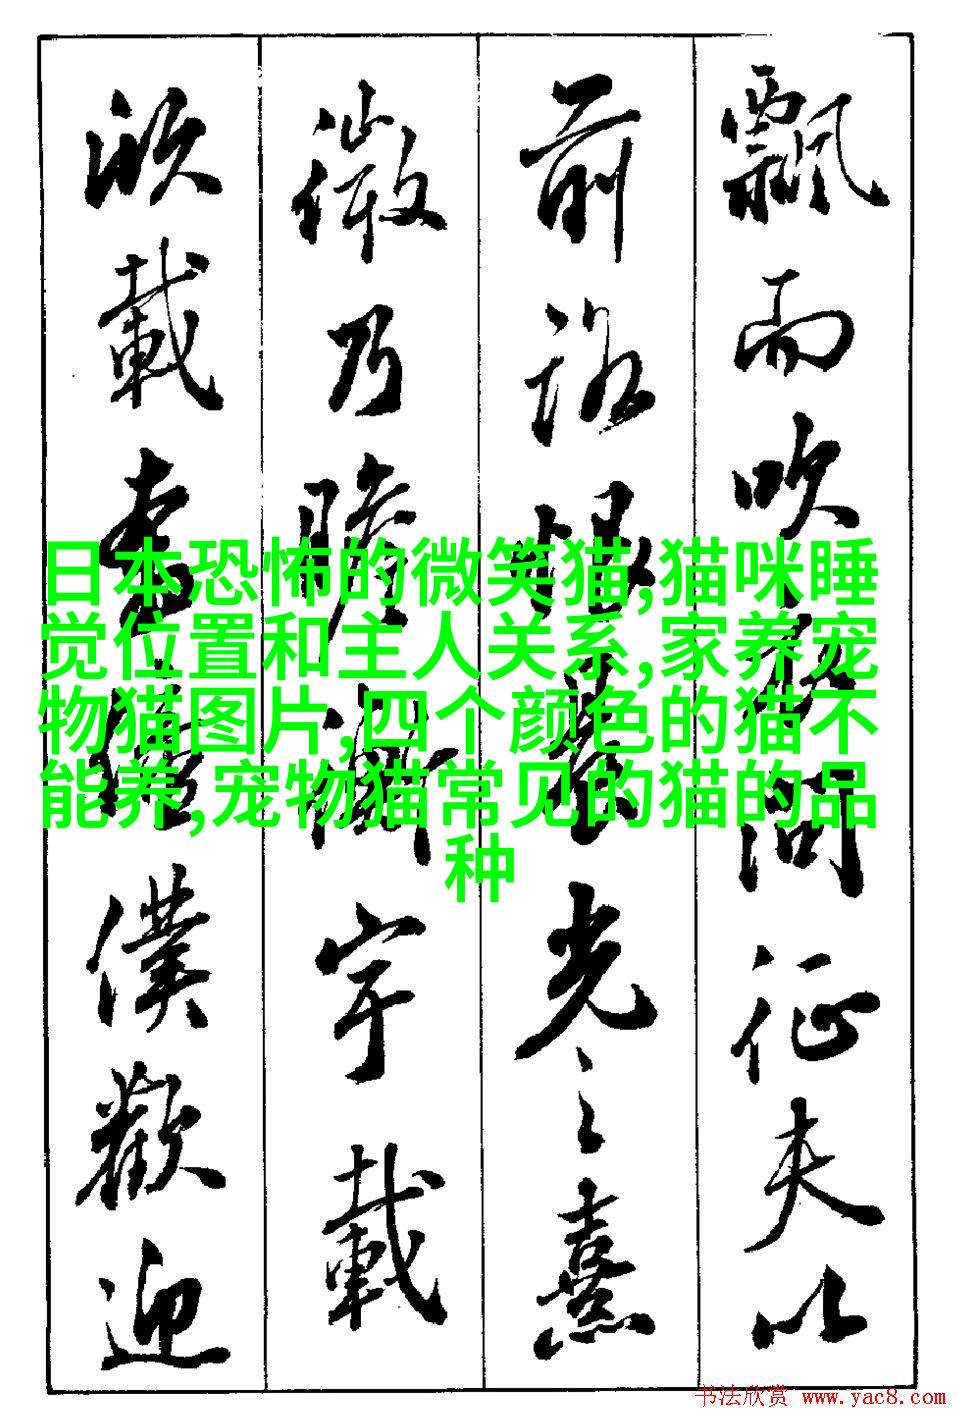 飘而吹衣问征夫以
前路恨晨光之熹
微乃瞻衡宇载
欣载奔僮仆欢迎
日本恐怖的微笑猫,猫咪睡
觉位置和主人关系,家养宠
物猫图片,四个颜色的猫不
能养,宠物猫常见的猫的品
种
书法欣赏 www.yac8.com